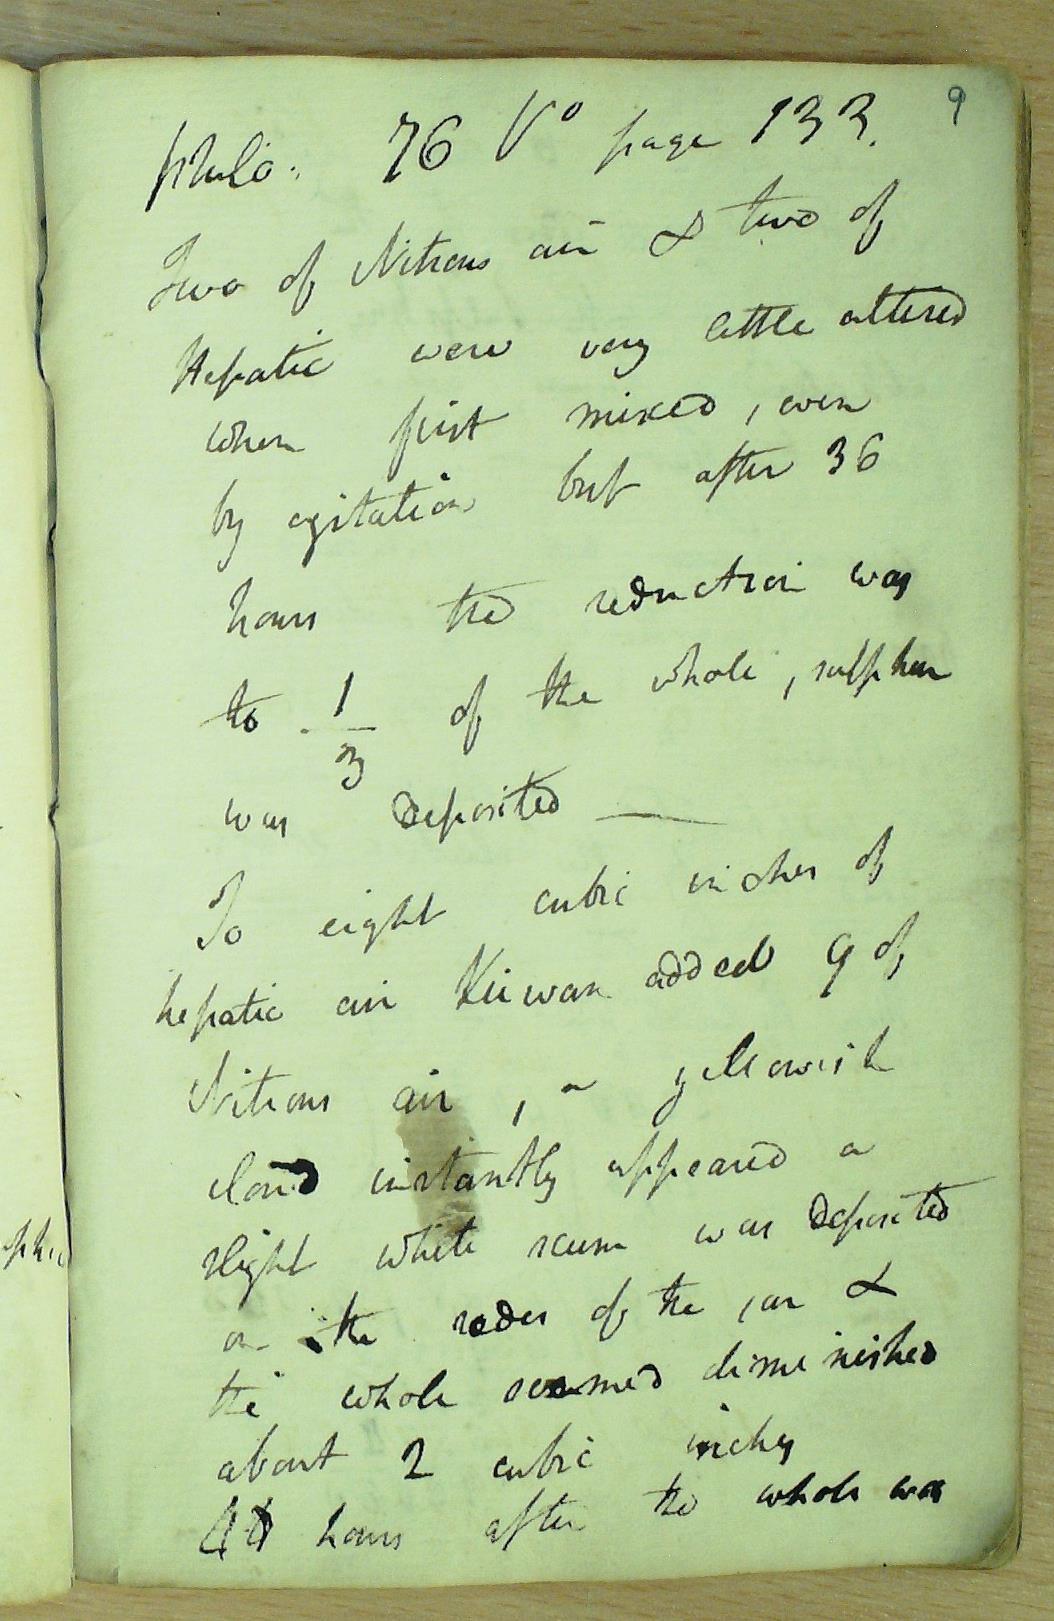 9
Philo. 76 Vo page 133.
Two of Nitrous air & two of
Hepatic were very little altered
when first mixed, even
by agitation but after 36
hours the reduction was
to 1/3 of the whole, sulphur
was deposited —
To eight cubic inches of
hepatic air Kirwan added 9 of
Nitrous air, a yellowish
cloud instantly appeared a
slight white scum was deposited
on the sides of the jar &
the whole seemed diminished
about 2 cubic inches
hours after the whole was